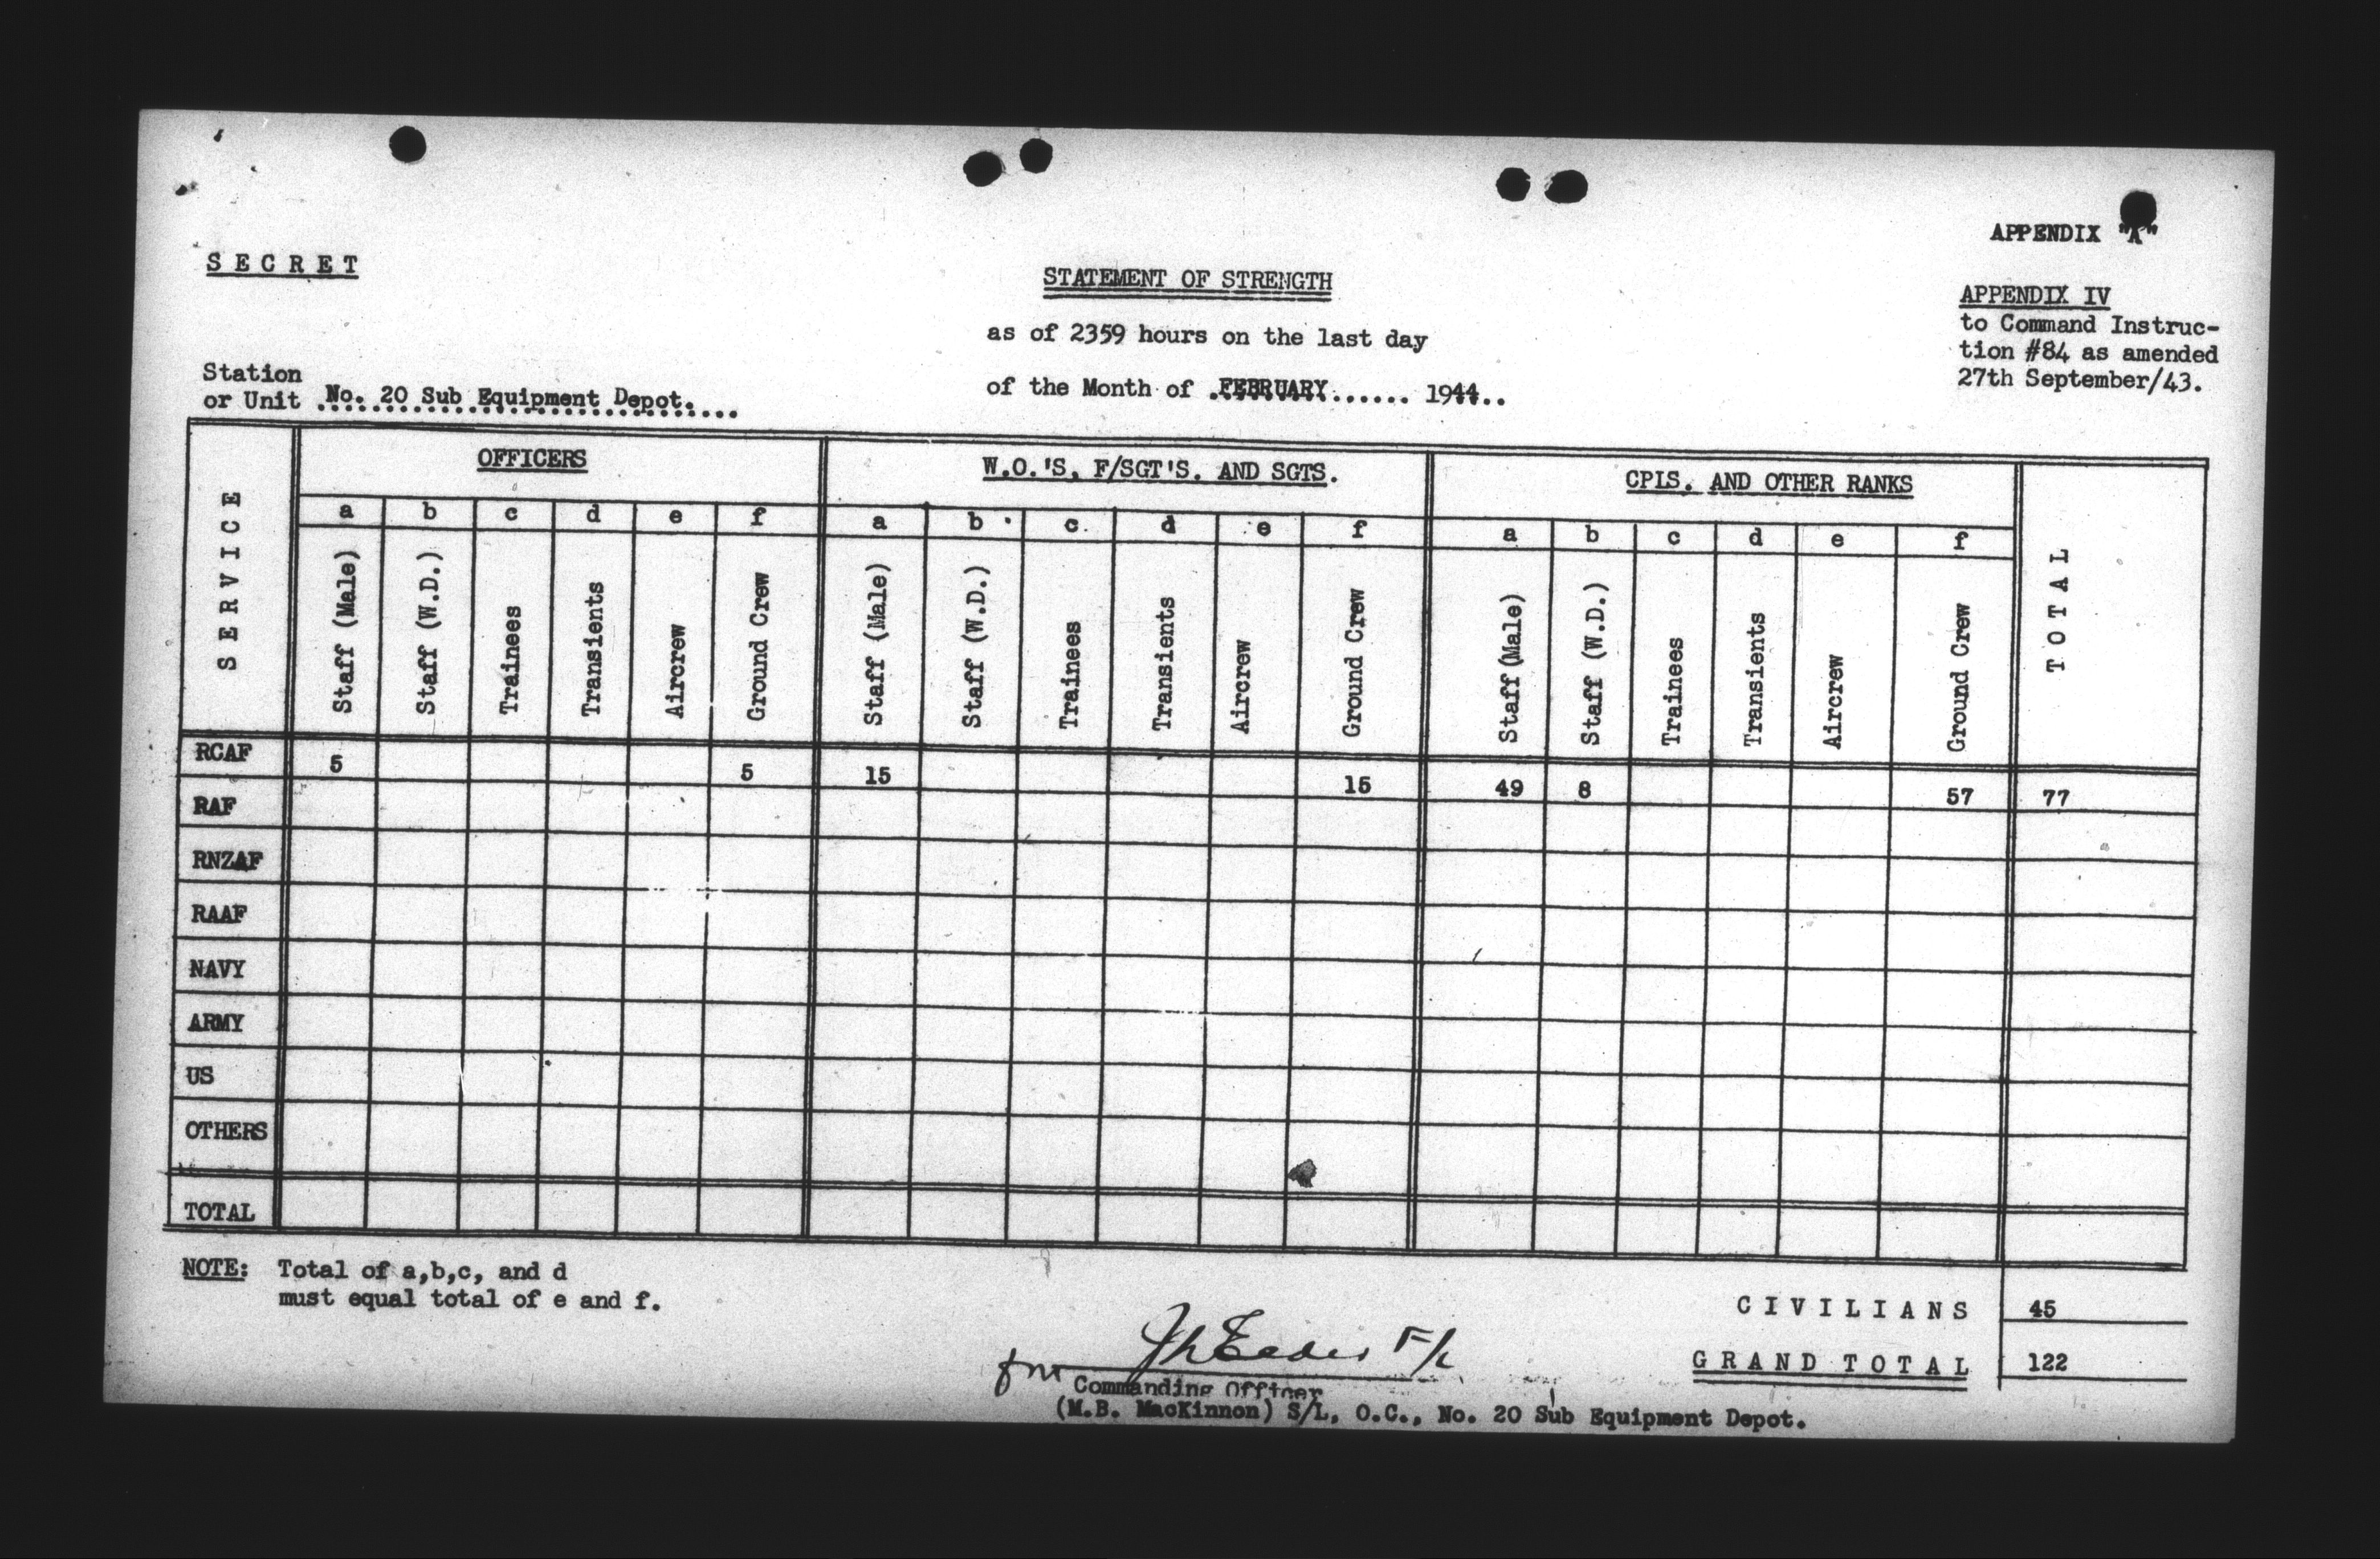 APPENDIX "A"
S E C R E T
STATEMENT OF STRENGTH
APPENDIX IV
to Command Instruc-
tion #84 as amended
27th September/43.
as of 2359 hours on the last day
of the Month of .FEBRUARY...... 1944..
Station
or Unit No. 20 Sub Equipment Depot.
SERVICE
OFFICERS
W.O.'S, F/SGT'S. AND SGTS.
CPLS. AND OTHER RANKS
TOTAL
a b c d e f a b c d e f a b c d e f
Staff (Male) Staff (W.D.) Trainees Transients Aircrew Ground Crew Staff (Male) Staff (W.D.) Trainees Transients Aircrew Ground Crew Staff (Male) Staff (W.D.) Trainees Transients Aircrew Ground Crew
RCAF 5 5 15 15 49 8 57 77
RAF
RNZAF
RAAF
NAVY
ARMY
US
OTHERS
TOTAL
NOTE: Total of a,b,c, and d
must equal total of e and f.
C I V I L I A N S 45
G R A N D T O T A L 122
for F/L
Commanding Officer
(M.B. MacKinnon) S/L, O.C., No. 20 Sub Equipment Depot.